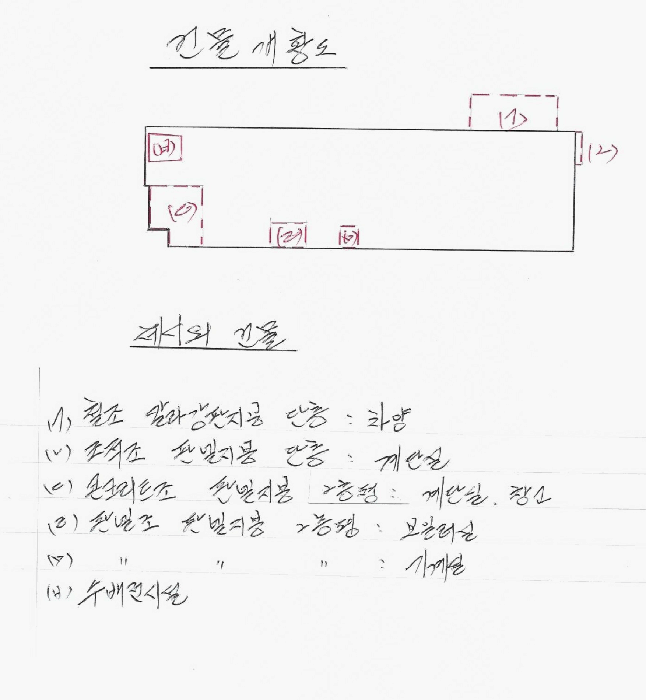 건물 개황도
(ㄱ)
(ㄴ)
(ㅂ)
(ㄷ)
(ㄹ)
(ㅁ)
제시외 건물
(ㄱ) 철조 칼라강판지붕 단층 : 차양
(ㄴ) 조적조 판넬지붕 단층 : 계단실
(ㄷ) 콘크리트조 판넬지붕 2층평 : 계단실. 창고
(ㄹ) 판넬조 판넬지붕 2층평 : 보일러실
(ㅁ) " " " : 기계실
(ㅂ) 수배전시설